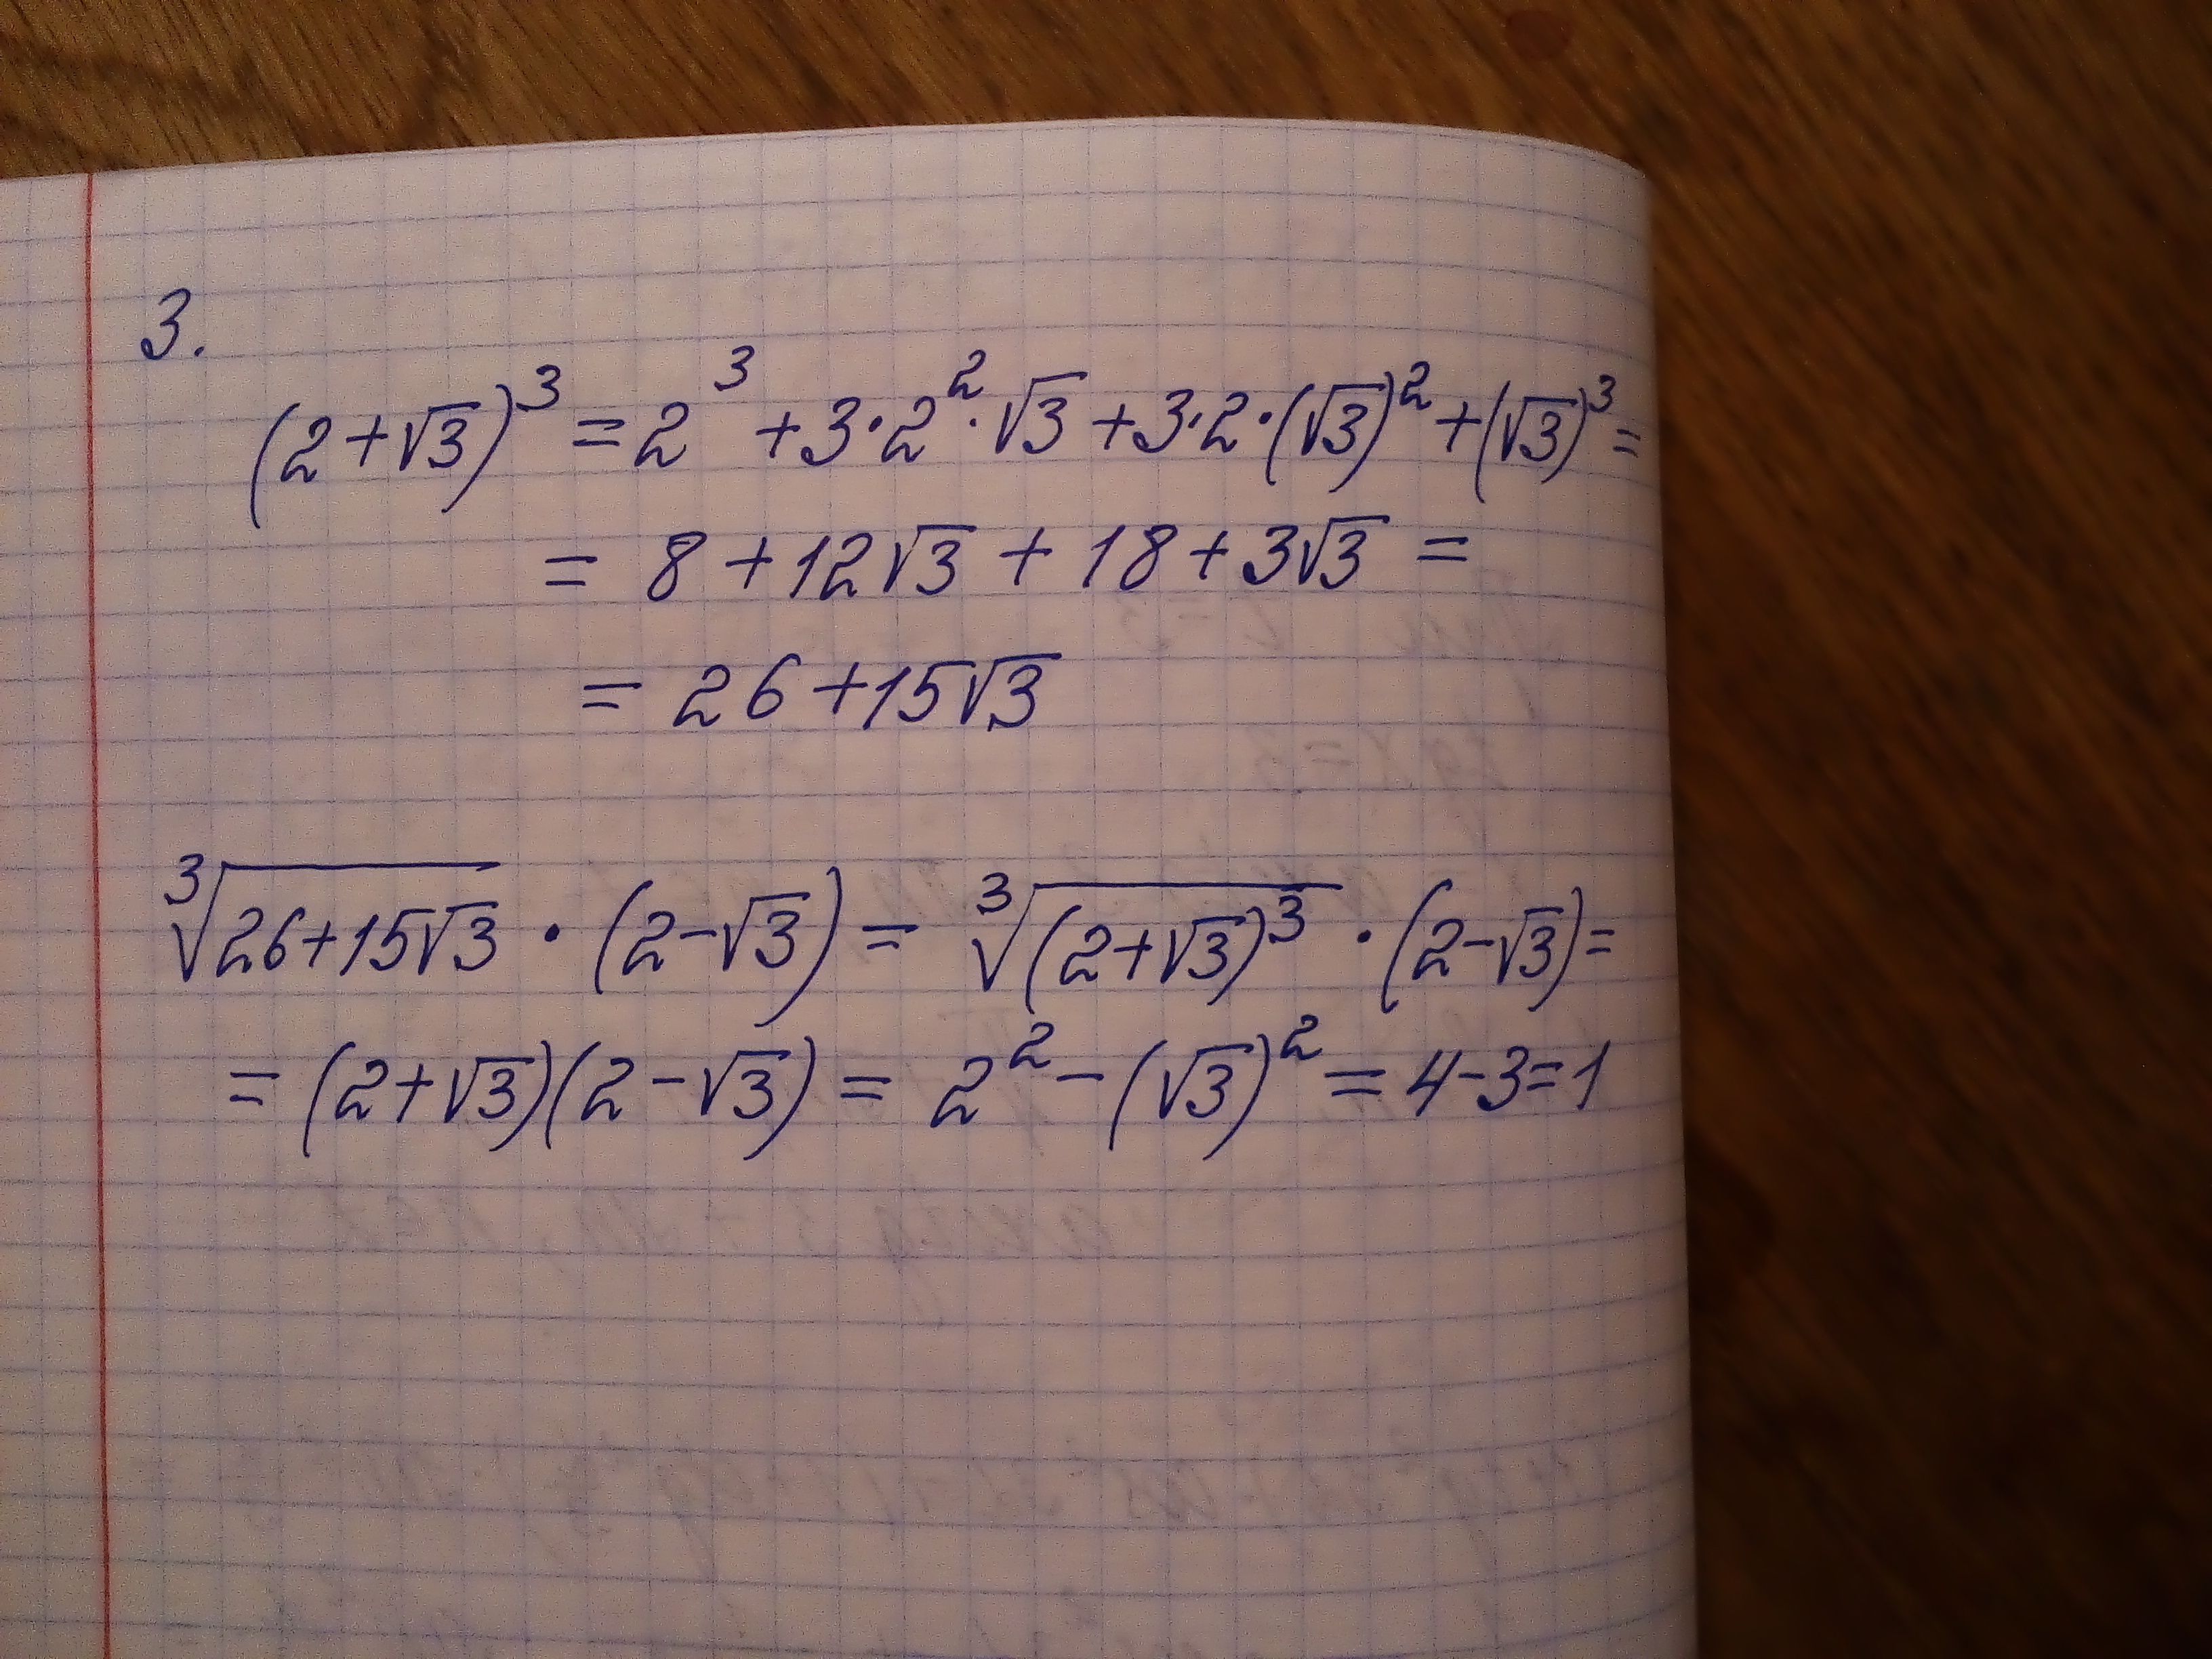 3.
(2+√3)³ = 2³ + 3·2²·√3 + 3·2·(√3)² + (√3)³ =
= 8 + 12√3 + 18 + 3√3 =
= 26 + 15√3
∛(26+15√3) · (2-√3) = ∛((2+√3)³) · (2-√3) =
= (2+√3)(2-√3) = 2² - (√3)² = 4-3=1